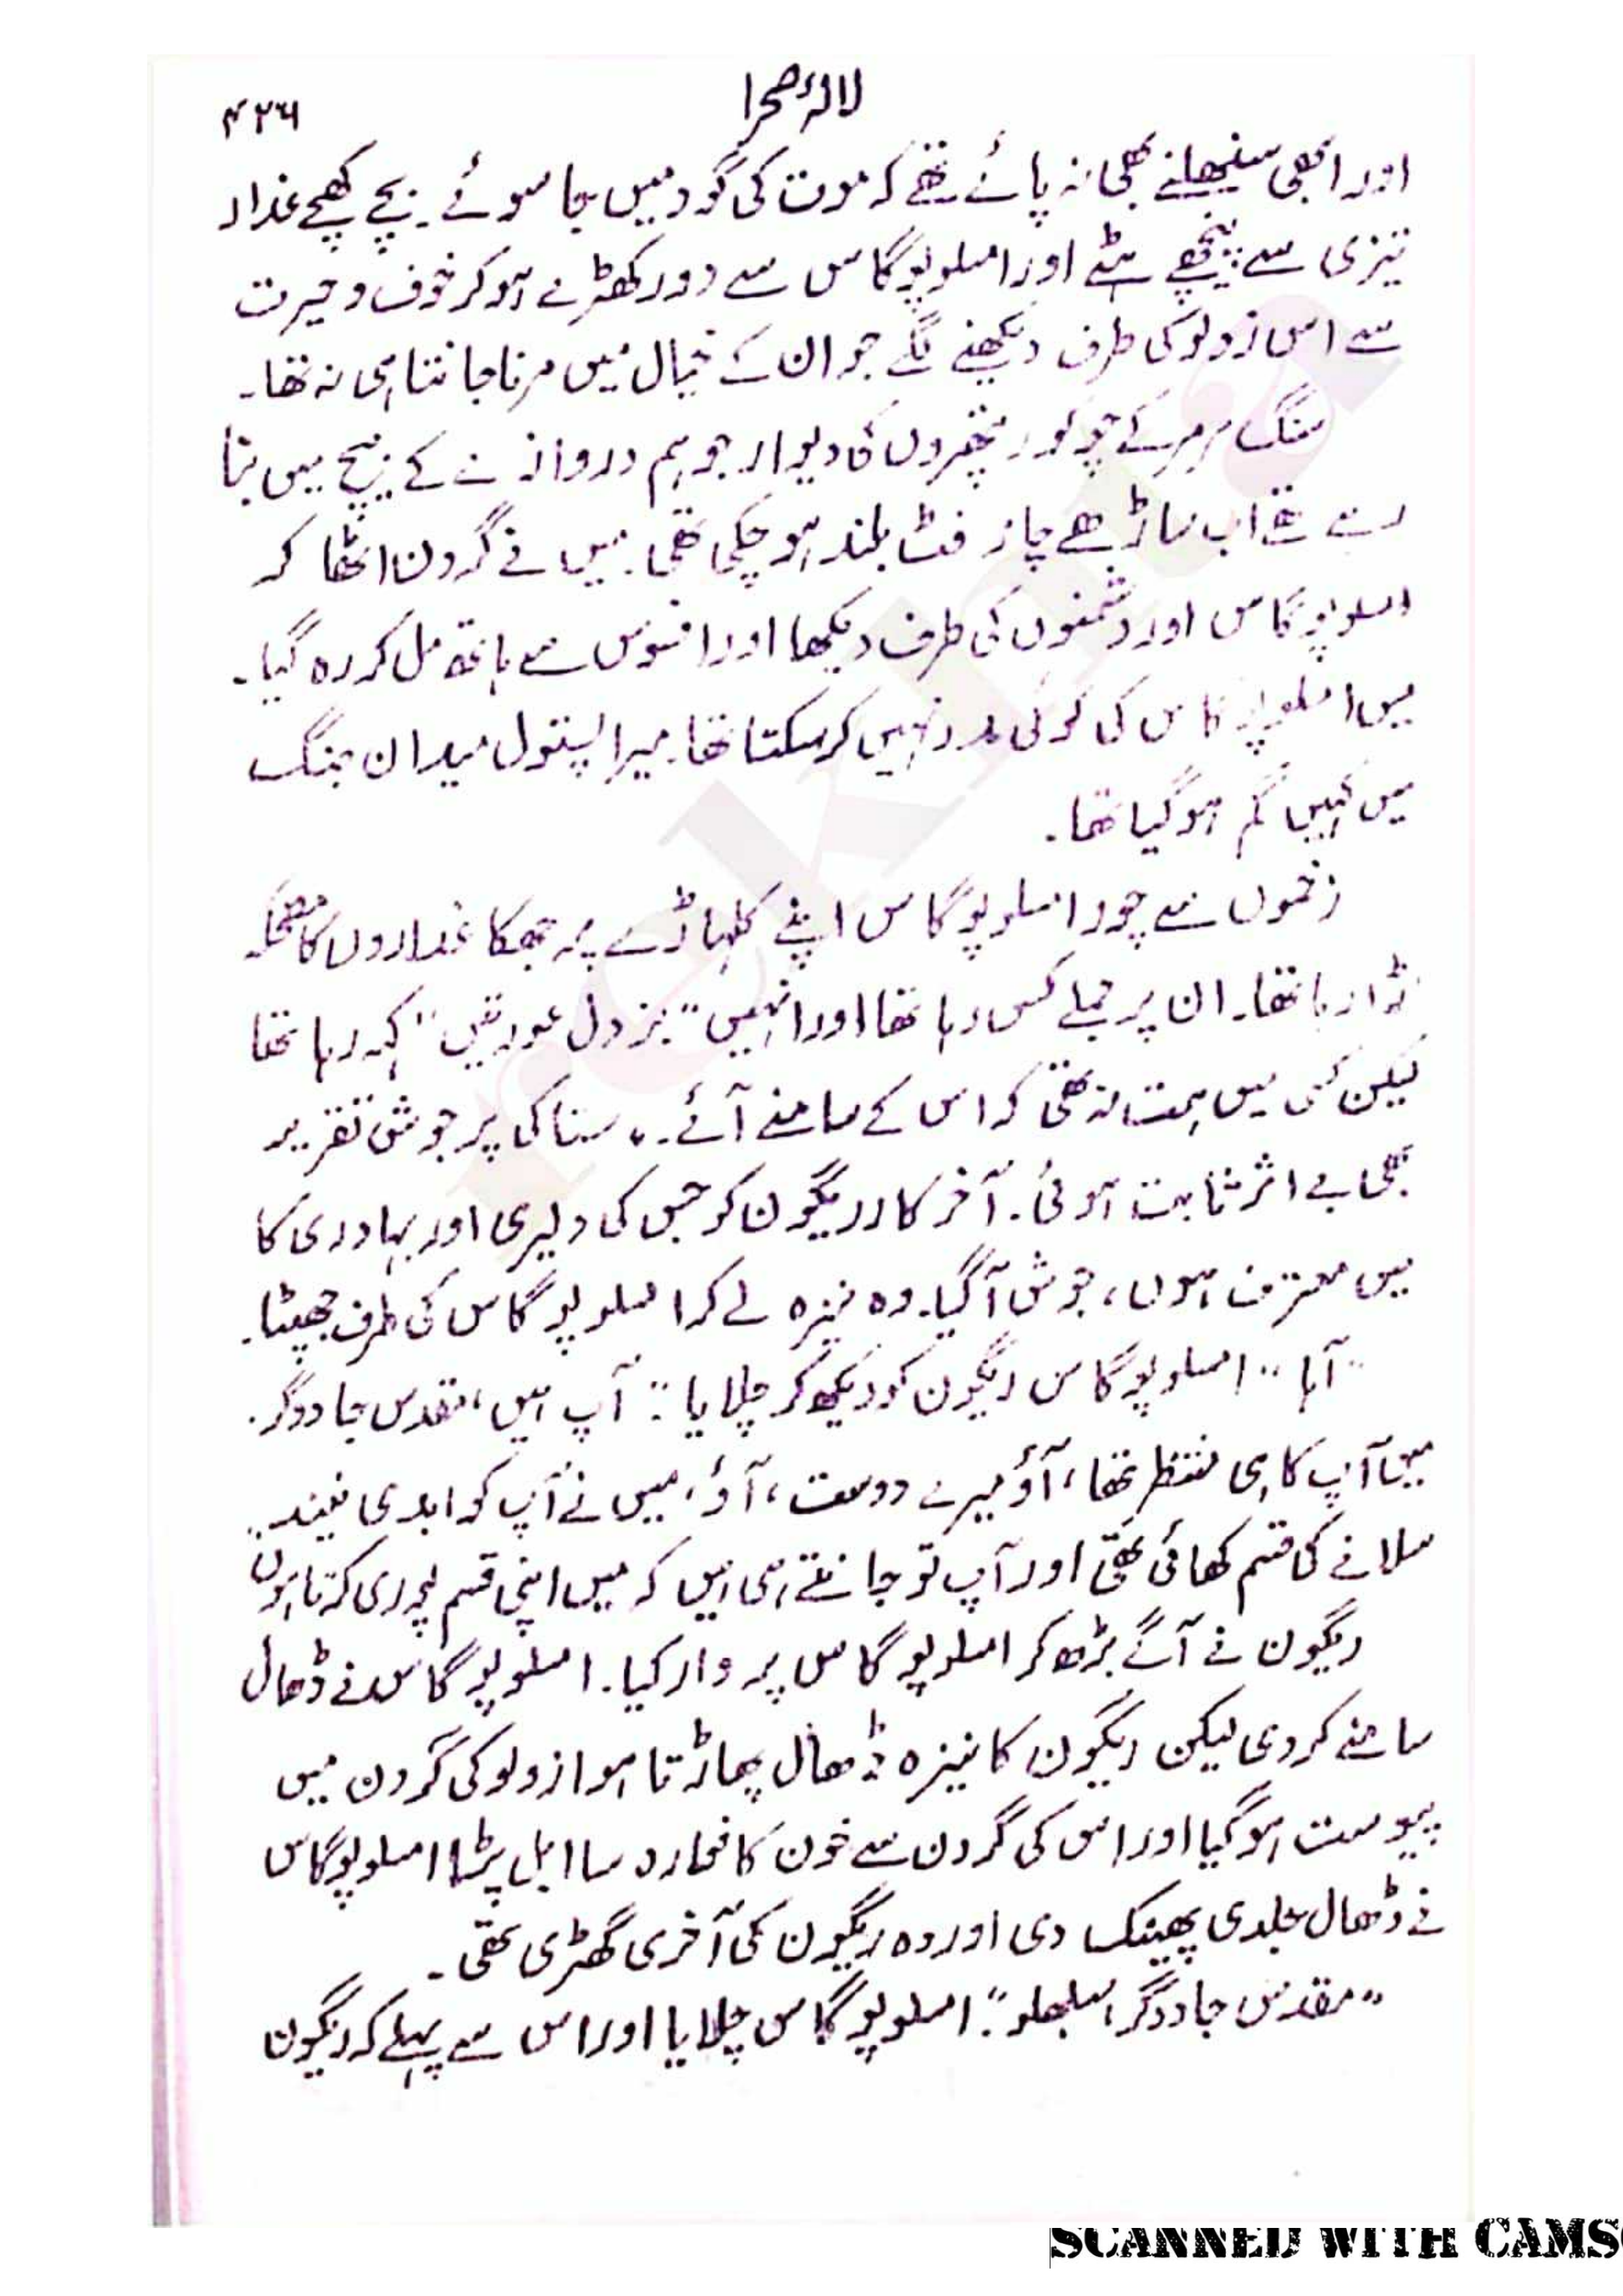 لالۂ صحرا
۴۲۶
اور ابھی سنبھلنے بھی نہ پائے تھے کہ موت کی گود میں جا سوئے۔ بچے کھچے غدار
تیزی سے پیچھے ہٹے اور امسلوپوگاس سے دور کھڑے ہو کر خوف و حیرت
سے اس زولو کی طرف دیکھنے لگے جو ان کے خیال میں مرنا جانتا ہی نہ تھا۔
سنگ مرمر کے چوکور پتھروں کی دیوار جو ہم دروازے کے بیچ میں بنا
رہے تھے اب ساڑھے چار فٹ بلند ہو چکی تھی۔ میں نے گردن اٹھا کر
امسلوپوگاس اور دشمنوں کی طرف دیکھا اور افسوس سے ہاتھ مل کر رہ گیا۔
میں امسلوپوگاس کی کوئی مدد نہیں کر سکتا تھا۔ میرا پستول میدان جنگ
میں کہیں گم ہو گیا تھا۔
زخموں سے چور امسلوپوگاس اپنے کلہاڑے پر جھکا غداروں کا مضحکہ
اڑا رہا تھا۔ ان پر جملے کس رہا تھا اور انہیں "بزدل عورتیں" کہہ رہا تھا
لیکن کسی میں ہمت نہ تھی کہ اس کے سامنے آئے۔ سنا کی پرجوش تقریر
بھی بے اثر ثابت ہوئی۔ آخر کار ریگون کو جس کی دلیری اور بہادری کا
میں معترف ہوں، جوش آ گیا۔ وہ نیزہ لے کر امسلوپوگاس کی طرف جھپٹا۔
"آہا" امسلوپوگاس ریگون کو دیکھ کر چلایا: "آپ ہیں، مقدس جادوگر۔
میں آپ کا ہی منتظر تھا، آؤ میرے دوست، آؤ، میں نے آپ کو ابدی نیند
سلانے کی قسم کھائی تھی اور آپ تو جانتے ہی ہیں کہ میں اپنی قسم پوری کرتا ہوں"
ریگون نے آگے بڑھ کر امسلوپوگاس پر وار کیا۔ امسلوپوگاس نے ڈھال
سامنے کر دی لیکن ریگون کا نیزہ ڈھال پھاڑتا ہوا زولو کی گردن میں
پیوست ہو گیا اور اس کی گردن سے خون کا فوارہ سا ابل پڑا امسلوپوگاس
نے ڈھال جلدی پھینک دی اور وہ ریگون کی آخری گھڑی تھی۔
"مقدس جادوگر، سنبھلو": امسلوپوگاس چلایا اور اس سے پہلے کہ ریگون
SCANNED WITH CAMS